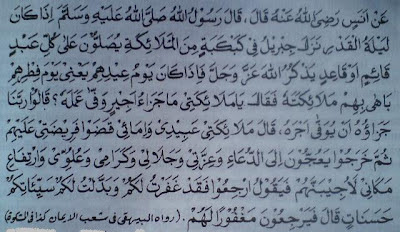 عَنْ اَنَسٍ رَضِىَ اللهُ عَنْهُ قَالَ، قَالَ رَسُوْلُ اللهِ صَلَّى اللهُ عَلَيْهِ وَسَلَّمَ اِذَا كَانَ
لَيْلَةُ الْقَدْرِ نَزَلَ جِبْرِيْلُ فِى كَبْكَبَةٍ مِنَ الْمَلَائِكَةِ يُصَلُّوْنَ عَلٰى كُلِّ عَبْدٍ
قَائِمٍ اَوْ قَاعِدٍ يَذْكُرُ اللهَ عَزَّ وَجَلَّ فَاِذَا كَانَ يَوْمُ عِيْدِهِمْ يَعْنِىْ يَوْمَ فِطْرِهِمْ
بَاهٰى بِهِمْ مَلَائِكَتَهُ فَقَالَ يَا مَلَائِكَتِىْ مَا جَزَاءُ اَجِيْرٍ وَفّٰى عَمَلَهُ؟ قَالُوْا رَبَّنَا
جَزَاؤُهُ اَنْ يُوَفّٰى اَجْرُهُ، قَالَ مَلَائِكَتِىْ عَبِيْدِىْ وَاِمَائِىْ قَضَوْا فَرِيْضَتِىْ عَلَيْهِمْ
ثُمَّ خَرَجُوْا يَعُجُّوْنَ اِلَى الدُّعَاءِ وَعِزَّتِىْ وَجَلَالِىْ وَكَرَمِىْ وَعُلُوِّىْ وَارْتِفَاعِ
مَكَانِىْ لَاُجِيْبَنَّهُمْ فَيَقُوْلُ ارْجِعُوْا فَقَدْ غَفَرْتُ لَكُمْ وَبَدَّلْتُ لَكُمْ سَيِّئَاتِكُمْ
حَسَنَاتٍ قَالَ فَيَرْجِعُوْنَ مَغْفُوْرًا لَهُمْ. (رواه البيهقى فى شعب الايمان كذا فى المشكوة)